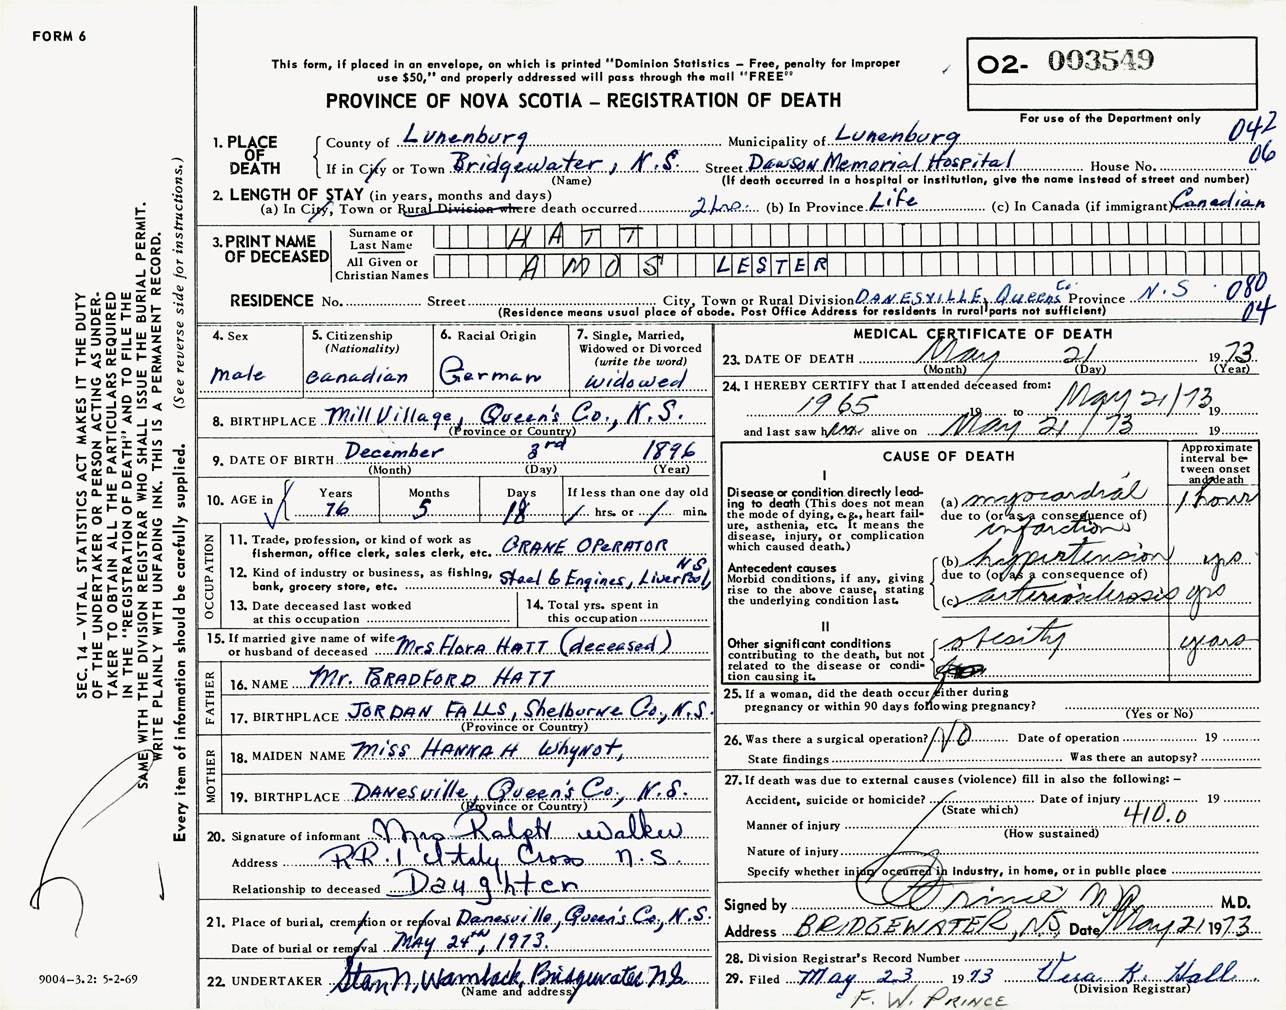 FORM 6
This form, if placed in an envelope, on which is printed "Dominion Statistics – Free, penalty for improper
use $50," and properly addressed will pass through the mail "FREE"
PROVINCE OF NOVA SCOTIA – REGISTRATION OF DEATH
O2- 003549
For use of the Department only
042
06
1. PLACE OF DEATH
County of Lunenburg Municipality of Lunenburg
If in City or Town Bridgewater, N.S. Street Dawson Memorial Hospital House No.
(Name) (If death occurred in a hospital or institution, give the name instead of street and number)
2. LENGTH OF STAY (in years, months and days)
(a) In City, Town or Rural Division where death occurred 2 hrs. (b) In Province Life (c) In Canada (if immigrant) Canadian
3. PRINT NAME OF DECEASED
Surname or Last Name HATT
All Given or Christian Names AMOS LESTER
RESIDENCE No. Street City, Town or Rural Division DANESVILLE, Queens Co. Province N.S. 080
04
(Residence means usual place of abode. Post Office Address for residents in rural parts not sufficient)
4. Sex
male
5. Citizenship
(Nationality)
Canadian
6. Racial Origin
German
7. Single, Married,
Widowed or Divorced
(write the word)
widowed
8. BIRTHPLACE Mill Village, Queen's Co., N.S.
(Province or Country)
9. DATE OF BIRTH December 3rd 1896
(Month) (Day) (Year)
10. AGE in
Years Months Days If less than one day old
76 5 18 / hrs. or / min.
OCCUPATION
11. Trade, profession, or kind of work as
fisherman, office clerk, sales clerk, etc. CRANE OPERATOR
12. Kind of industry or business, as fishing,
bank, grocery store, etc. Steel & Engines, Liverpool, N.S.
13. Date deceased last worked
at this occupation
14. Total yrs. spent in
this occupation
15. If married give name of wife
or husband of deceased Mrs. Flora HATT (deceased)
FATHER
16. NAME Mr. BRADFORD HATT
17. BIRTHPLACE JORDAN FALLS, Shelburne Co., N.S.
(Province or Country)
MOTHER
18. MAIDEN NAME Miss HANNAH Whynot,
19. BIRTHPLACE DANesville, Queen's Co., N.S.
(Province or Country)
20. Signature of informant Mrs Ralph Walker
Address R.R.1 Italy Cross N.S.
Relationship to deceased Daughter
21. Place of burial, cremation or removal Danesville, Queen's Co., N.S.
Date of burial or removal MAY 24th, 1973.
22. UNDERTAKER Stan N. Wamback, Bridgewater N.S.
(Name and address)
MEDICAL CERTIFICATE OF DEATH
23. DATE OF DEATH May 21 1973
(Month) (Day) (Year)
24. I HEREBY CERTIFY that I attended deceased from:
1965 19 to May 21/73 19
and last saw him alive on May 21/73 19
CAUSE OF DEATH
Approximate
interval be-
tween onset
and death
I
Disease or condition directly lead-
ing to death (This does not mean
the mode of dying, e.g., heart fail-
ure, asthenia, etc. It means the
disease, injury, or complication
which caused death.)
(a) myocardial 1 hour
due to (or as a consequence of)
infarction
Antecedent causes
Morbid conditions, if any, giving
rise to the above cause, stating
the underlying condition last.
(b) hypertension yrs
due to (or as a consequence of)
(c) arteriosclerosis yrs
II
Other significant conditions
contributing to the death, but not
related to the disease or condi-
tion causing it.
obesity years
25. If a woman, did the death occur either during
pregnancy or within 90 days following pregnancy?
(Yes or No)
26. Was there a surgical operation? NO Date of operation 19
State findings Was there an autopsy?
27. If death was due to external causes (violence) fill in also the following: –
Accident, suicide or homicide? Date of injury 19
(State which)
Manner of injury 410.0
(How sustained)
Nature of injury
Specify whether injury occurred in industry, in home, or in public place
Signed by Prince MD M.D.
Address BRIDGEWATER, NS Date May 21 1973
28. Division Registrar's Record Number
29. Filed May 23 1973 Vera K. Hall
(Division Registrar)
F. W. PRINCE
SEC. 14 – VITAL STATISTICS ACT MAKES IT THE DUTY
OF THE UNDERTAKER OR PERSON ACTING AS UNDER-
TAKER TO OBTAIN ALL THE PARTICULARS REQUIRED
IN THE "REGISTRATION OF DEATH" AND TO FILE THE
SAME WITH THE DIVISION REGISTRAR WHO SHALL ISSUE THE BURIAL PERMIT.
WRITE PLAINLY WITH UNFADING INK. THIS IS A PERMANENT RECORD.
Every item of information should be carefully supplied. (See reverse side for instructions.)
9004–3.2: 5-2-69